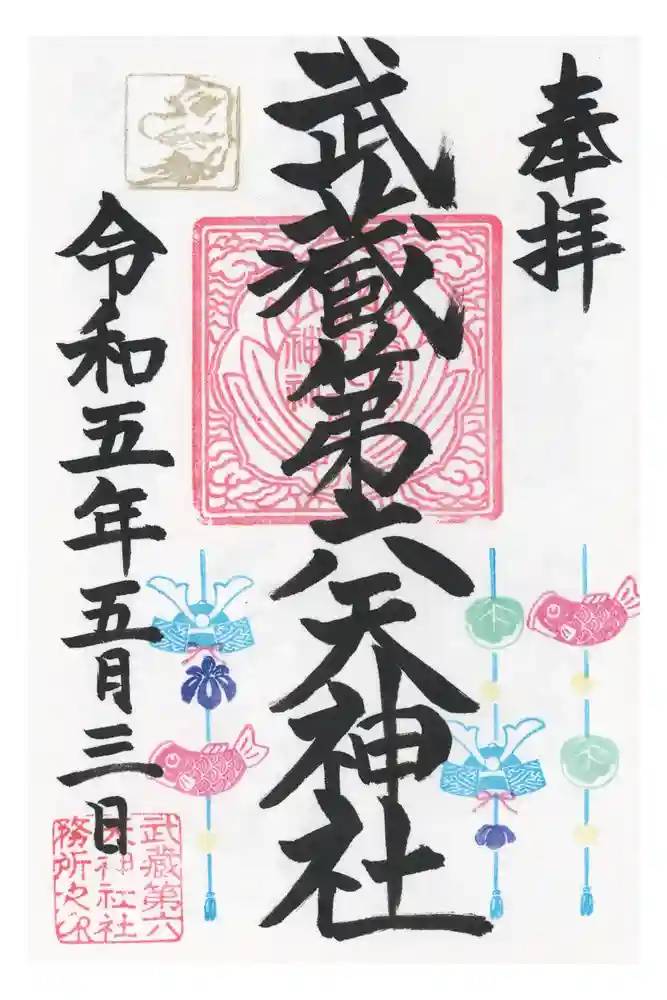 奉拝
武蔵第六天神社
令和五年五月三日
武蔵第六
天神社社
務所之印